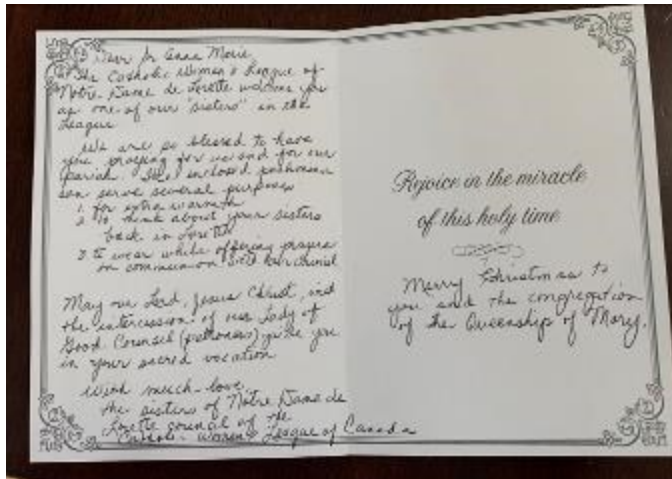 Dear Sr Anna Marie,
The Catholic Women's League of
Notre Dame de Lorette welcomes you
as one of our "sisters" in the
League
We are so blessed to have
you praying for us and for our
parish. The enclosed
can serve several purposes
1. for extra warmth
2 to think about your sisters
back in Lorette
3 to wear while offering prayers
or communion with
May our Lord, Jesus Christ, and
the intercession of our Lady of
Good Counsel (patroness) guide you
in your sacred vocation
With much love
the sisters of Notre Dame de
Lorette council of the
Catholic Women's League of Canada
Rejoice in the miracle
of this holy time
Merry Christmas to
you and the congregation
of the Queenship of Mary.